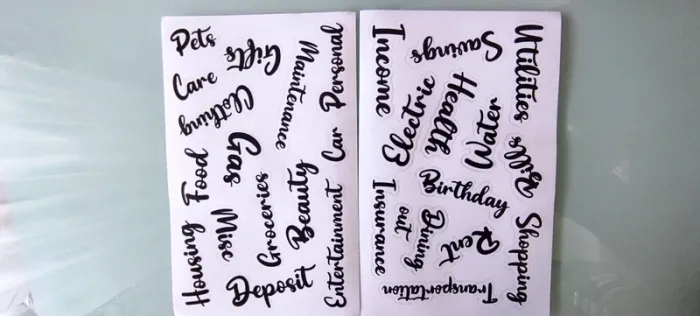 Pets
Gifts
Maintenance
Personal
Care
Clothing
Gas
Car
Food
Housing
Misc
Groceries
Beauty
Entertainment
Deposit
Income
Savings
Utilities
Electric
Health
Water
Bills
Birthday
Insurance
Dining
out
Rent
Shopping
Transportation